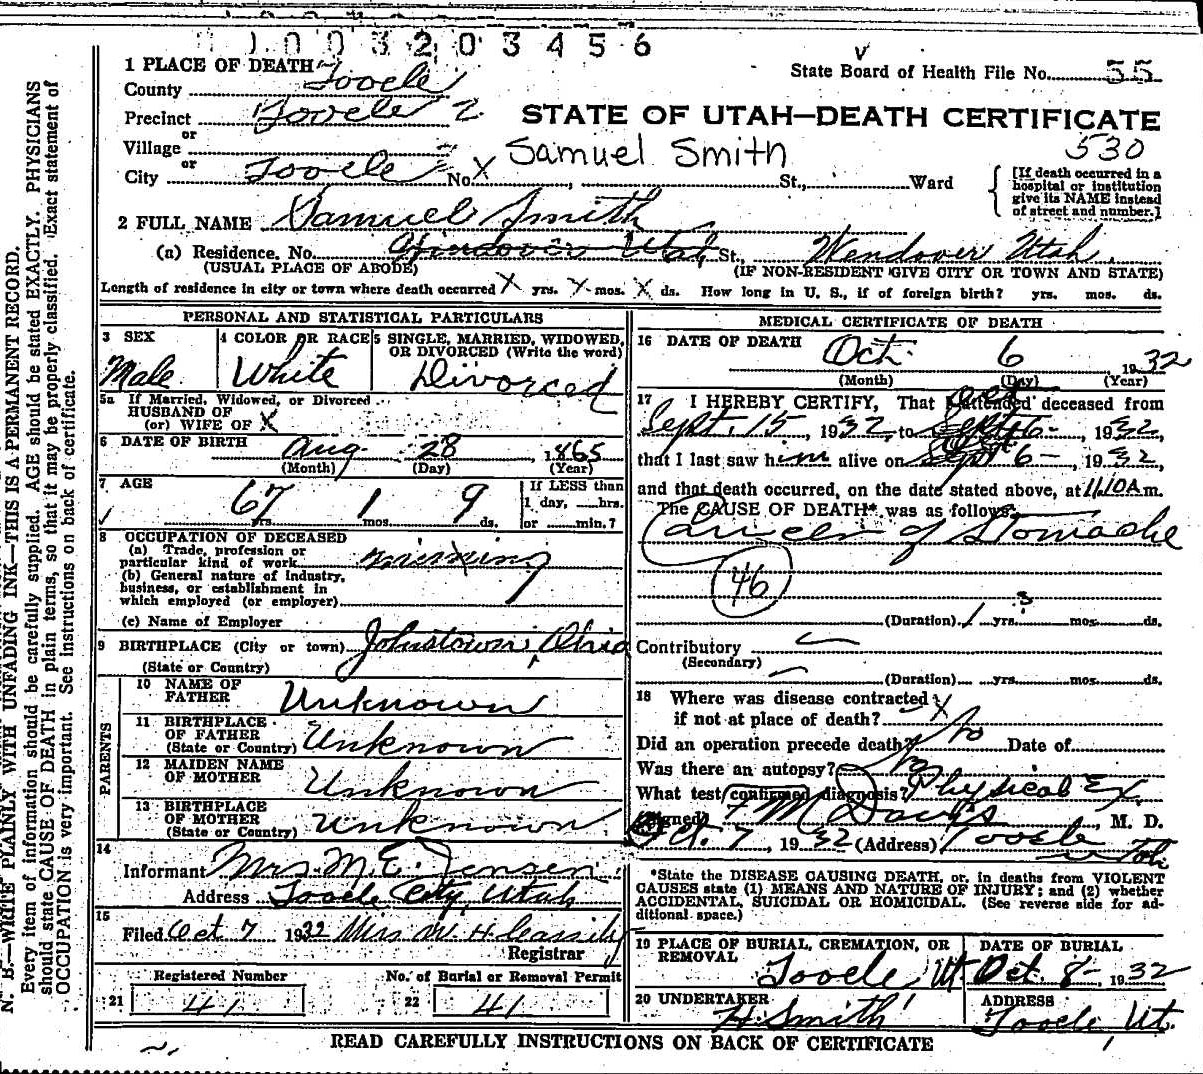 1 0 0 3 2 0 3 4 5 6
1 PLACE OF DEATH
State Board of Health File No. 55
County Tooele
Precinct Tooele 2
STATE OF UTAH—DEATH CERTIFICATE
or
Village
Samuel Smith
530
or
City Tooele No. X, St., Ward
[If death occurred in a hospital or institution give its NAME instead of street and number.]
2 FULL NAME Samuel Smith
(a) Residence. No. Windover Utah St., Wendover Utah.
(USUAL PLACE OF ABODE) (IF NON-RESIDENT GIVE CITY OR TOWN AND STATE)
Length of residence in city or town where death occurred X yrs. X mos. X ds. How long in U. S., if of foreign birth? yrs. mos. ds.
PERSONAL AND STATISTICAL PARTICULARS
3 SEX
Male
4 COLOR OR RACE
White
5 SINGLE, MARRIED, WIDOWED, OR DIVORCED (Write the word)
Divorced
5a If Married, Widowed, or Divorced
HUSBAND OF
(or) WIFE OF X
6 DATE OF BIRTH Aug 28, 1865
(Month) (Day) (Year)
7 AGE
67 yrs. 1 mos. 9 ds.
If LESS than
1 day, hrs.
or min.?
8 OCCUPATION OF DECEASED
(a) Trade, profession or
particular kind of work mining
(b) General nature of industry,
business, or establishment in
which employed (or employer)
(c) Name of Employer
9 BIRTHPLACE (City or town) Johnstown, Ohio
(State or Country)
PARENTS
10 NAME OF
FATHER Unknown
11 BIRTHPLACE
OF FATHER
(State or Country) Unknown
12 MAIDEN NAME
OF MOTHER Unknown
13 BIRTHPLACE
OF MOTHER
(State or Country) Unknown
14
Informant Mrs. M. E. Jensen
Address Tooele City, Utah
15
Filed Oct 7 1932 Mrs W. H. Cassity
Registrar
Registered Number No. of Burial or Removal Permit
21 41 22 41
MEDICAL CERTIFICATE OF DEATH
16 DATE OF DEATH
Oct. 6 1932
(Month) (Day) (Year)
17 I HEREBY CERTIFY, That I attended deceased from
Sept. 15, 1932, to Oct 6-, 1932,
that I last saw him alive on Oct 6-, 1932,
and that death occurred, on the date stated above, at 11.10 A m.
The CAUSE OF DEATH* was as follows:
Cancer of Stomache
46
(Duration) yrs. mos. ds.
Contributory
(Secondary)
(Duration) yrs. mos. ds.
18 Where was disease contracted
if not at place of death? X
Did an operation precede death? No Date of
Was there an autopsy? No
What test confirmed diagnosis? Physical Ex.
(Signed) T M Davis, M. D.
Oct. 7, 1932 (Address) Tooele
*State the DISEASE CAUSING DEATH, or, in deaths from VIOLENT
CAUSES state (1) MEANS AND NATURE OF INJURY; and (2) whether
ACCIDENTAL, SUICIDAL OR HOMICIDAL. (See reverse side for ad-
ditional space.)
19 PLACE OF BURIAL, CREMATION, OR
REMOVAL
Tooele Ut
DATE OF BURIAL
Oct. 8-, 1932
20 UNDERTAKER
H. Smith
ADDRESS
Tooele, Ut.
READ CAREFULLY INSTRUCTIONS ON BACK OF CERTIFICATE
N. B.—WRITE PLAINLY WITH UNFADING INK—THIS IS A PERMANENT RECORD.
Every item of information should be carefully supplied. AGE should be stated EXACTLY. PHYSICIANS
should state CAUSE OF DEATH in plain terms, so that it may be properly classified. Exact statement of
OCCUPATION is very important. See instructions on back of certificate.